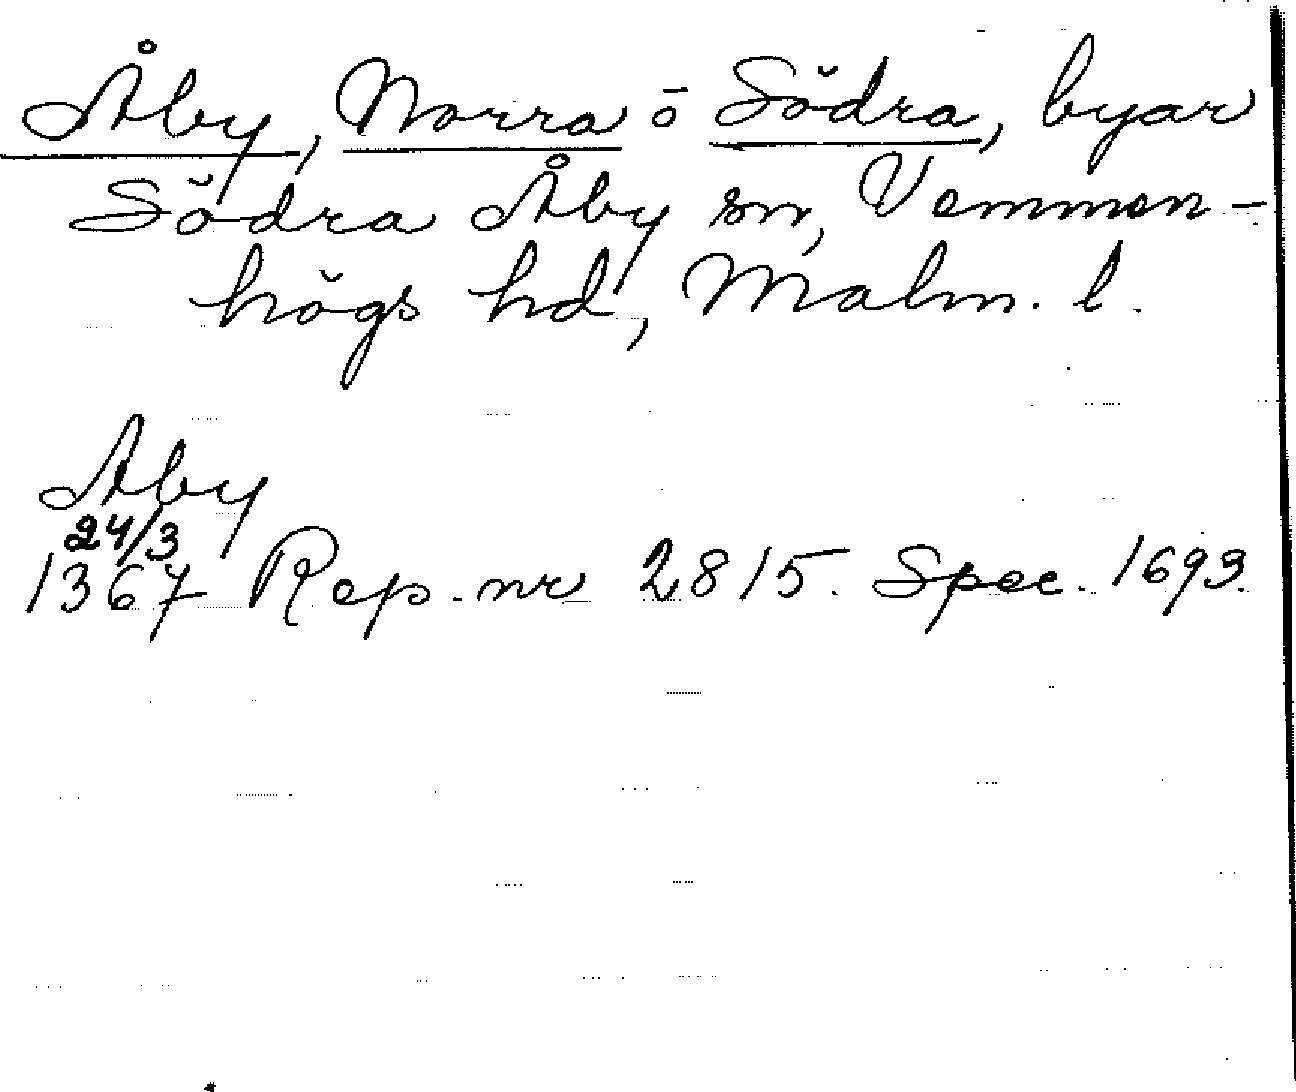 Åby, Norra ō Södra, byar
Södra Åby sn, Vemmen-
högs hd, Malm. l.
Aby
24/3
1367 Rep. nr 2815. Spec. 1693.